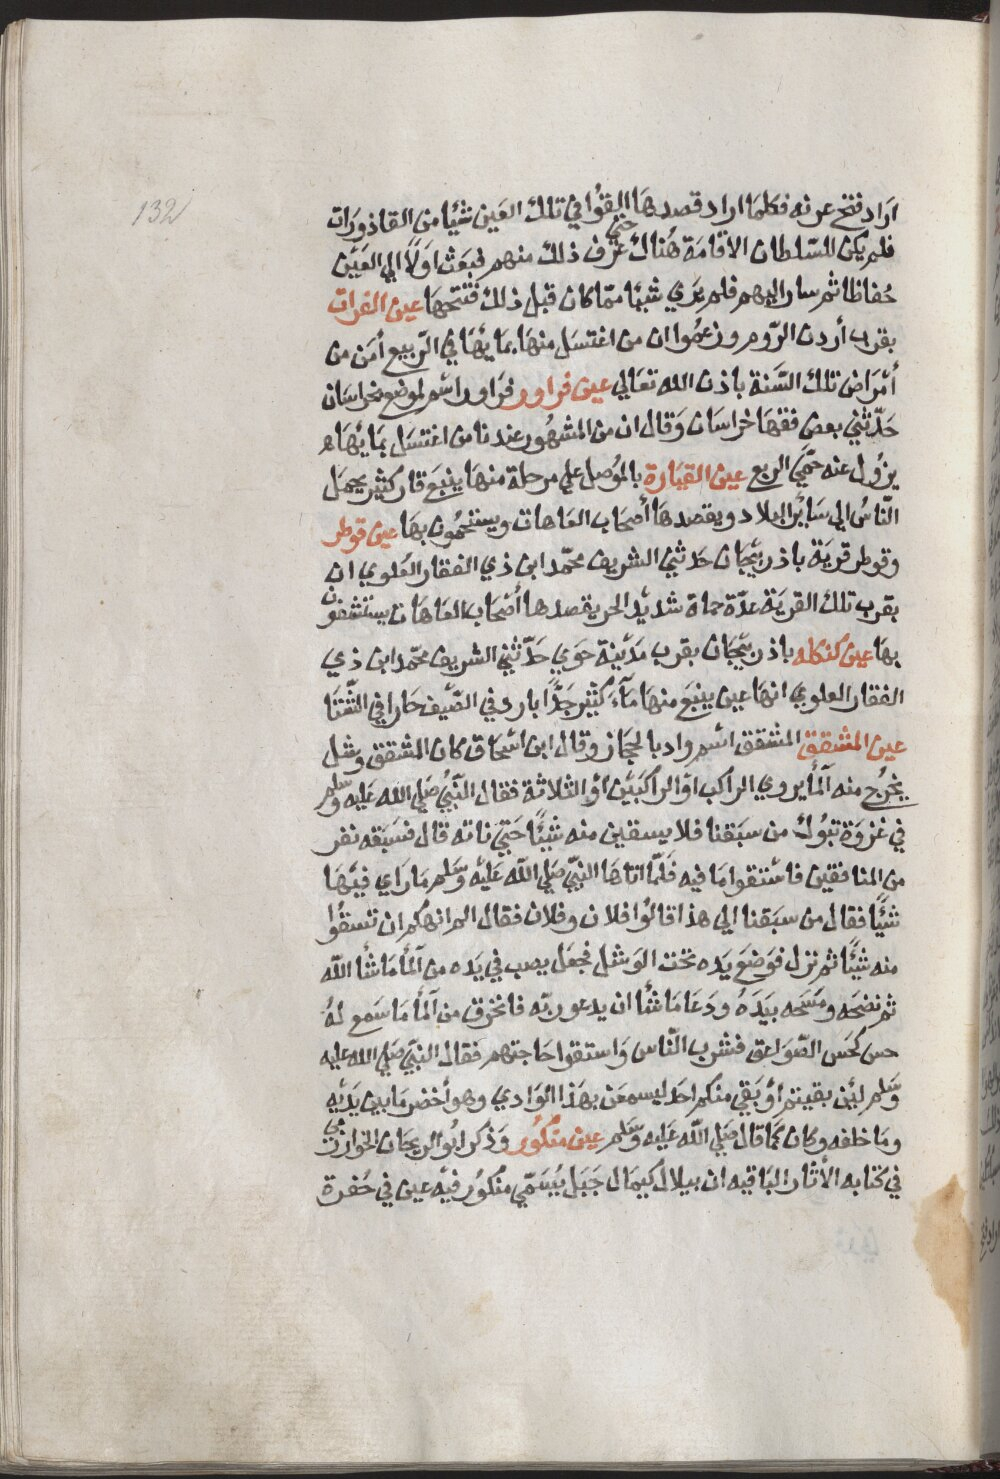 132
اراد فتح عرنه فكلما اراد قصدها اليقوا في تلك العين شيئا من القاذورات
فلم يكن للسلطان الاقامة هناك حتى عرف ذلك منهم فبعث اولا الي العين
حفاظا ثم سار اليهم فلم يري شيئا مما كان قبل ذلك ففتحها عين الفرات
بقرب أردن الروم وزعموا ان من اغتسل منها بمايها في الربيع أمن من
أمراض تلك السنة باذن الله تعالي عين فراور فراور اسم لموضع بخراسان
حدثني بعض فقها خراسان وقال ان من المشهور عندنا من اغتسل بمايها
يزول عنه حمي الربع عين القيارة بالموصل علي مرحلة منها ينبع قار كثير يحمل
الناس الي ساير البلاد ويقصدها أصحاب العاهات ويستحمون بها عين قوطر
وقوطر قرية باذربيجان حدثني الشريف محمد ابن ذي الفقار العلوي ان
بقرب تلك القرية عدة حماة شديد الحر يقصدها أصحاب العاهات يستشفون
بها عين كنكله باذربيجان بقرب مدينة خوي حدثني الشريف محمد ابن ذي
الفقار العلوي انها عين ينبع منها ماء كثير جدا بارد في الصيف حارا في الشتا
عين المشقق المشقق اسم واد بالحجاز وقال ابن اسحاق كان المشقق وشل
يخرج منه المأ يروي الراكب او الراكبين أو الثلاثة فقال النبي صلي الله عليه وسلم
في غزوة تبوك من سبقنا فلا يسقين منه شيئا حتي ناته قال فسبقه نفر
من المنافقين فاستقوا ما فيه فلما اتاها النبي صلي الله عليه وسلم ما راي فيها
شيئا فقال من سبقنا الي هذا قالوا فلان وفلان فقال الم انهكم ان تسقوا
منه شيئا ثم نزل فوضع يده تحت الوشل فجعل يصب في يده من المأ ما شأ الله
ثم نضحه ومسحه بيده ودعا ما شأ ان يدعو ربه فانخرق من المأ ما سمع له
حس كحس الصواعق فشرب الناس واستقوا حاجتهم فقال النبي صلي الله عليه
وسلم لئن بقيتم أو بقي منكم احد ليسمعن بهذا الوادي وهو أخضر ما بين يديه
وما خلفه وكان كما قال صلي الله عليه وسلم عين منكور وذكر ابو الريحان الخوارزمي
في كتابه الأثار الباقيه ان ببلال كيمال جبل يسمي منكور فيه عين في حفرة